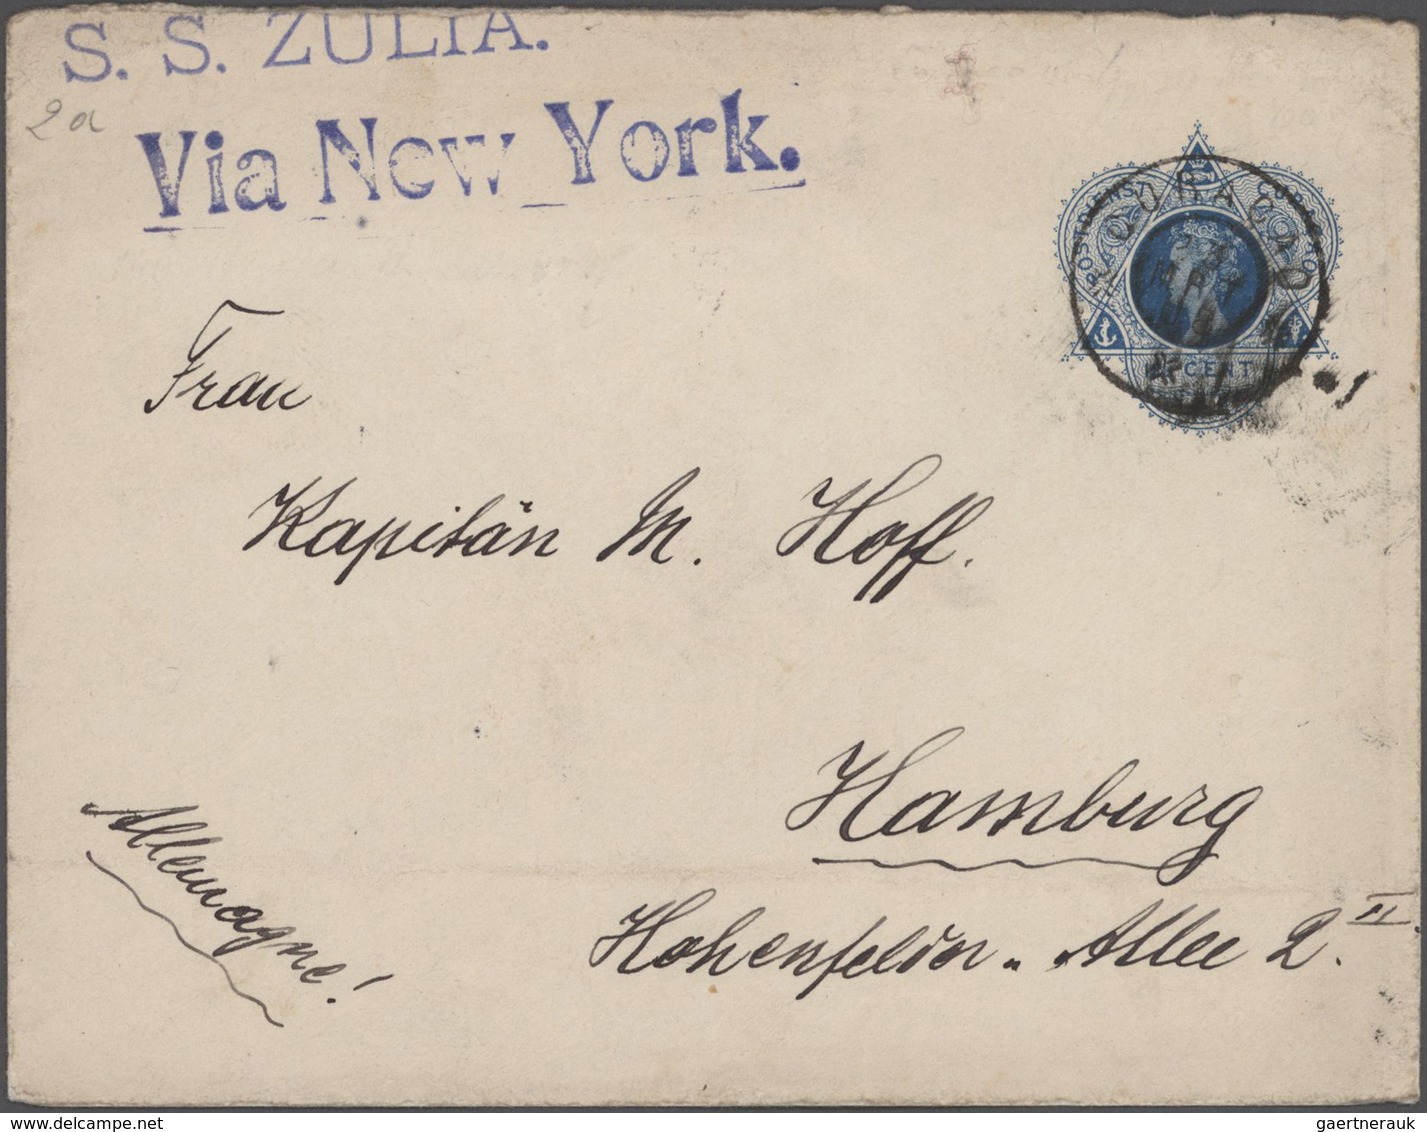 S. S. ZULIA.
2a
Via New York.
CURAÇAO
MRT
CENT
Frau
Kapitän M. Hoff.
Hamburg
Allemagne!
Hohenfelder-Allee 2.II.
delcampe.net
gaertnerauk